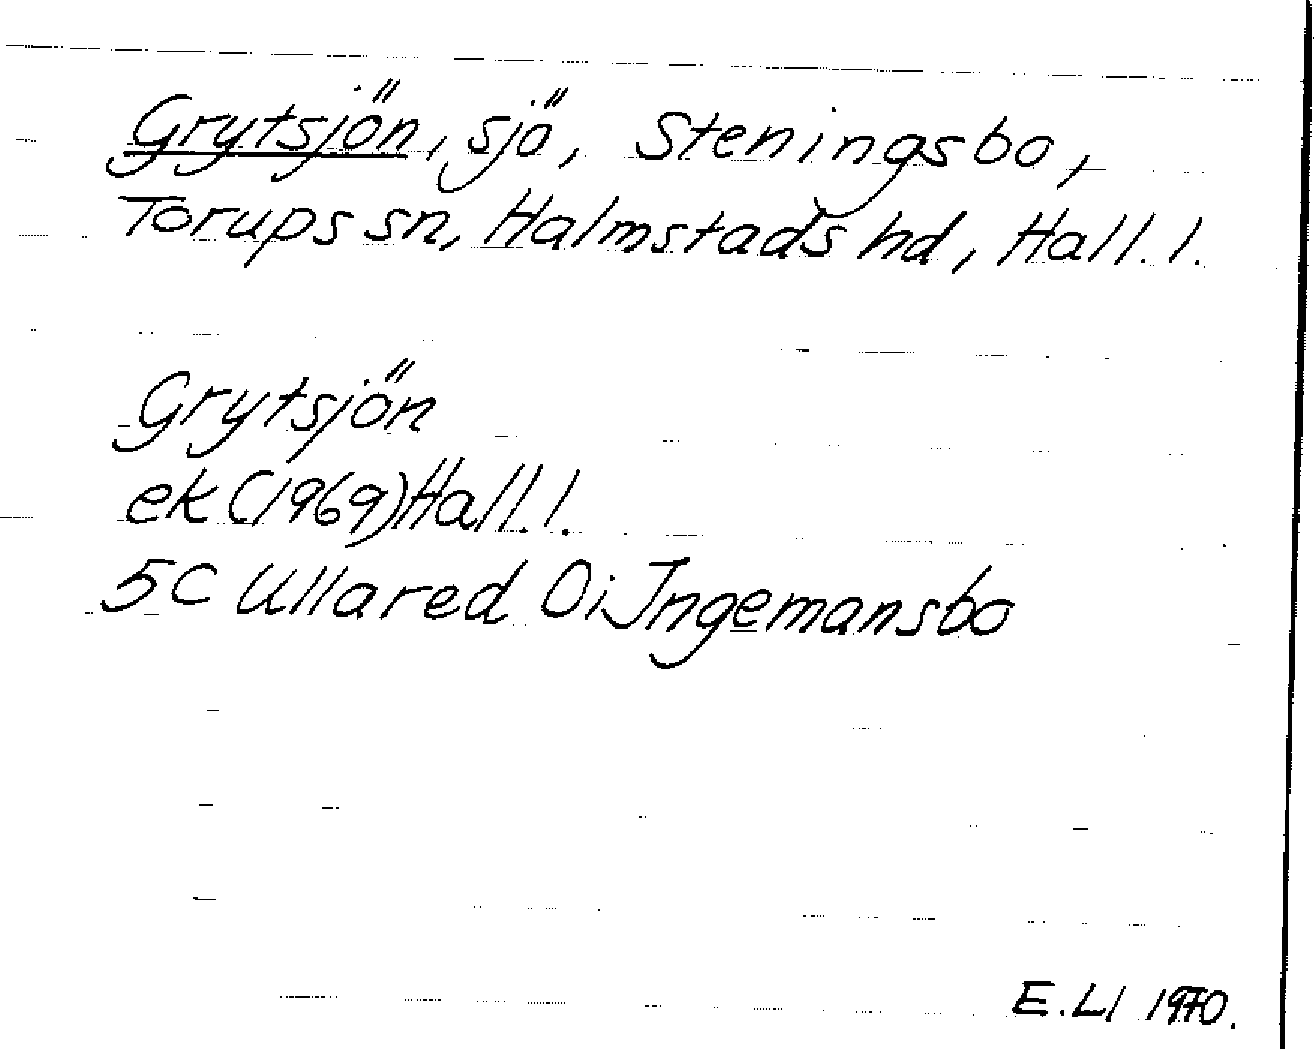 Grytsjön, sjö, Steningsbo,
Torups sn, Halmstads hd, Hall. l.
Grytsjön
ek (1969) Hall. l.
5C Ullared 0i Ingemansbo
E.Ll 1970.